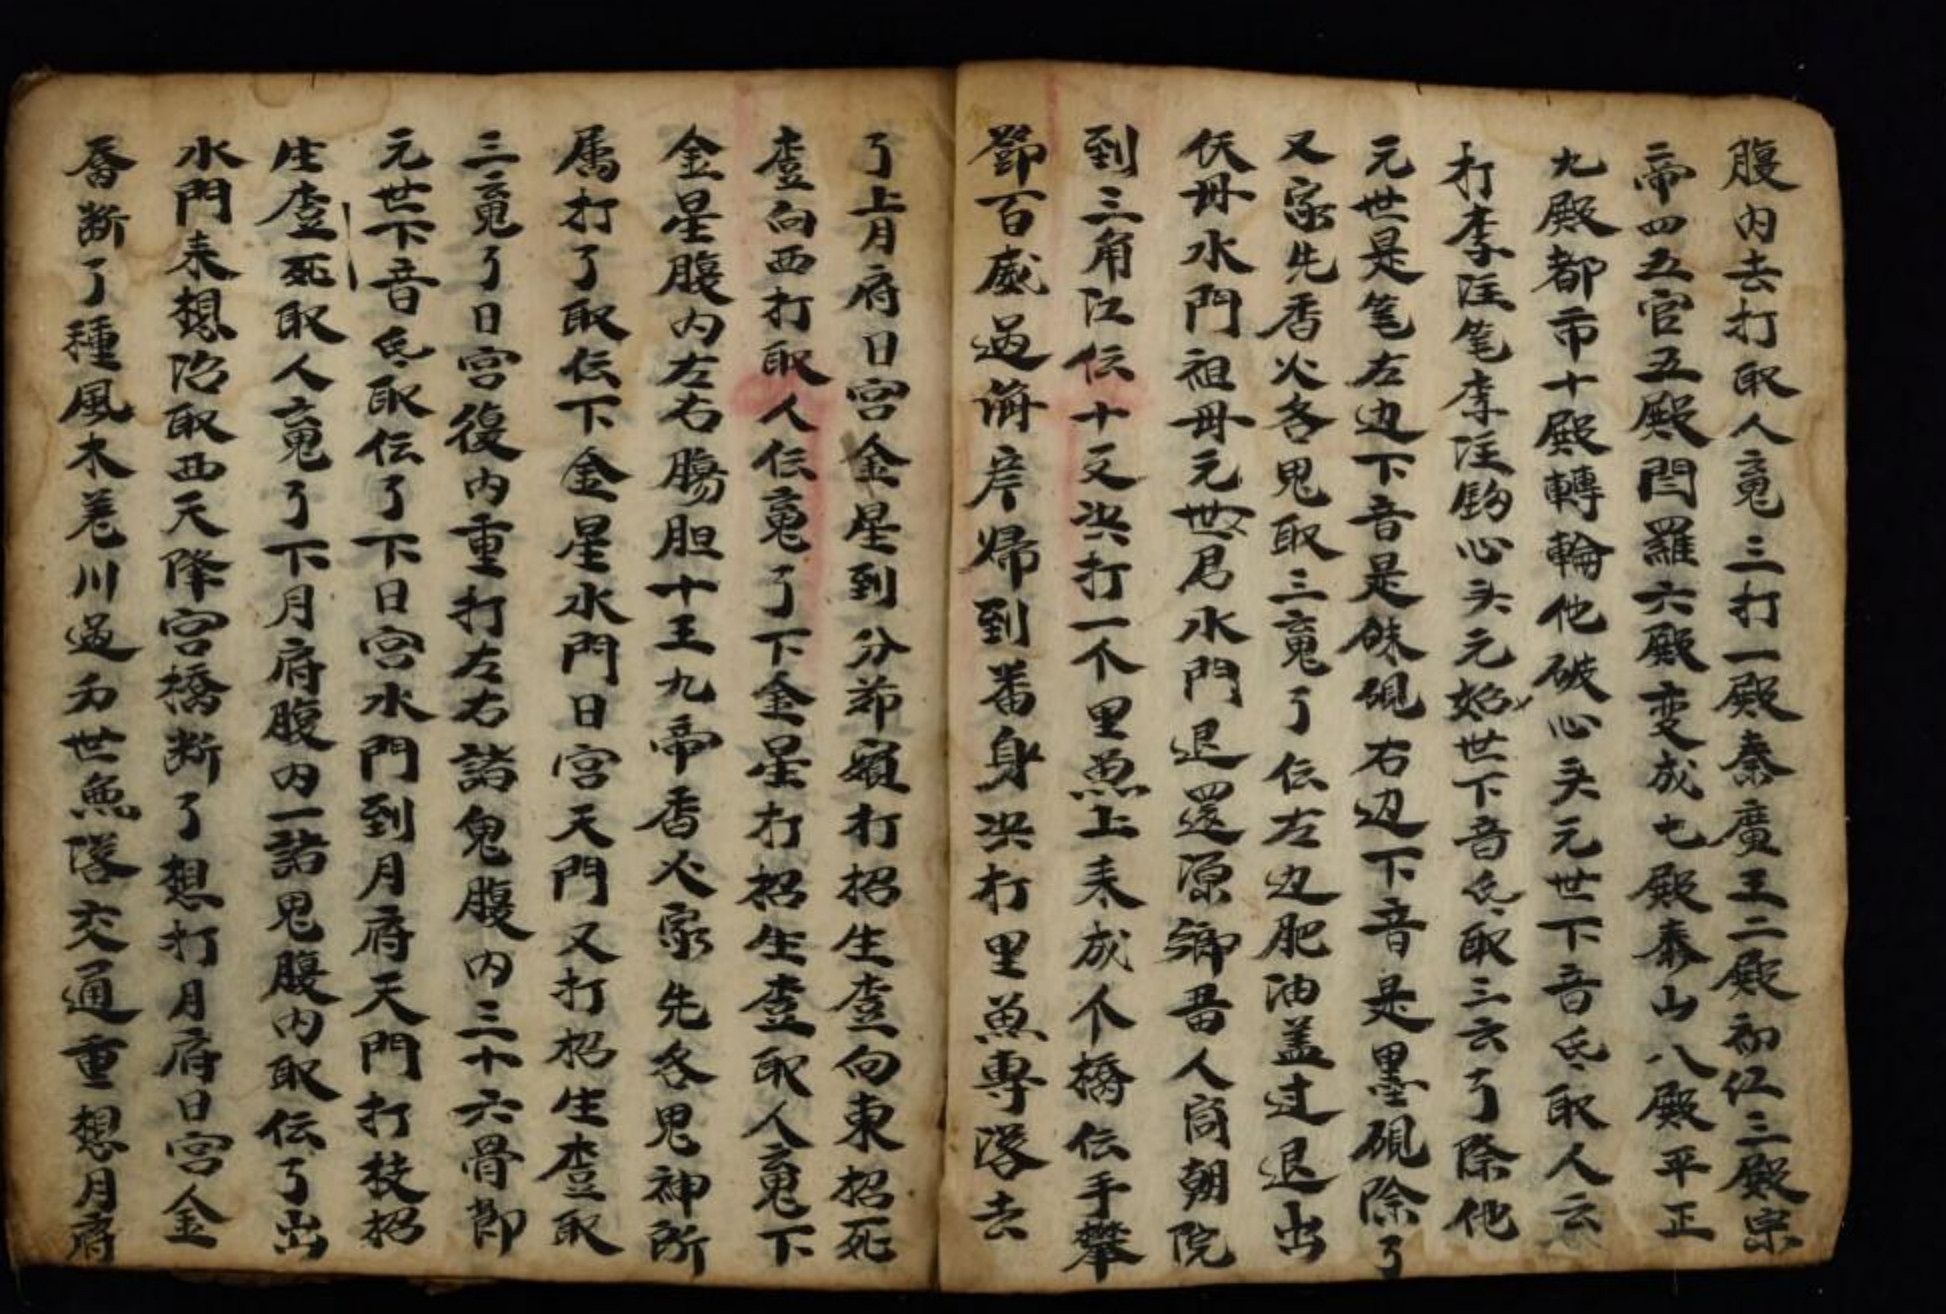 腹内去打取人䰟三打一殿秦廣王二殿初江三殿宗
帝四五官五殿閆羅六殿变成七殿泰山八殿平正
九殿都市十殿轉輪他破心头元世下音氏取人云
打李注笔李注鈎心头元始世下音氏取三云了除他
元世是笔左边下音是硃硯右边下音是墨硯除了
又家先香火各鬼取三䰟了伝左边肥油盖过退出
伏母水門祖母元世君水門退還源鄉番人同朝院
到三角江伝十叉洪打一个里魚上来成个橋伝手攀
鄧百威过偹岸歸到番身洪打里魚專落去
了上月府日宫金星到分茆嶺打招生查向東招死
查向西打取人伝䰟了下金星打招生查取人䰟下
金星腹内左右腸胆十王九帝香火家先各鬼神所
属打了取伝下金星水門日宫天門又打招生查取
三䰟了日宫復内重打左右諸鬼腹内三十六骨節
元世下音氏取伝了下日宫水門到月府天門打枝招
生查死取人䰟了下月府腹内一諸鬼腹内取伝了出
水門来想治取西天降宫橋断了想打月府日宫金
唇断了種風木卷川过为世魚落交通重想月府